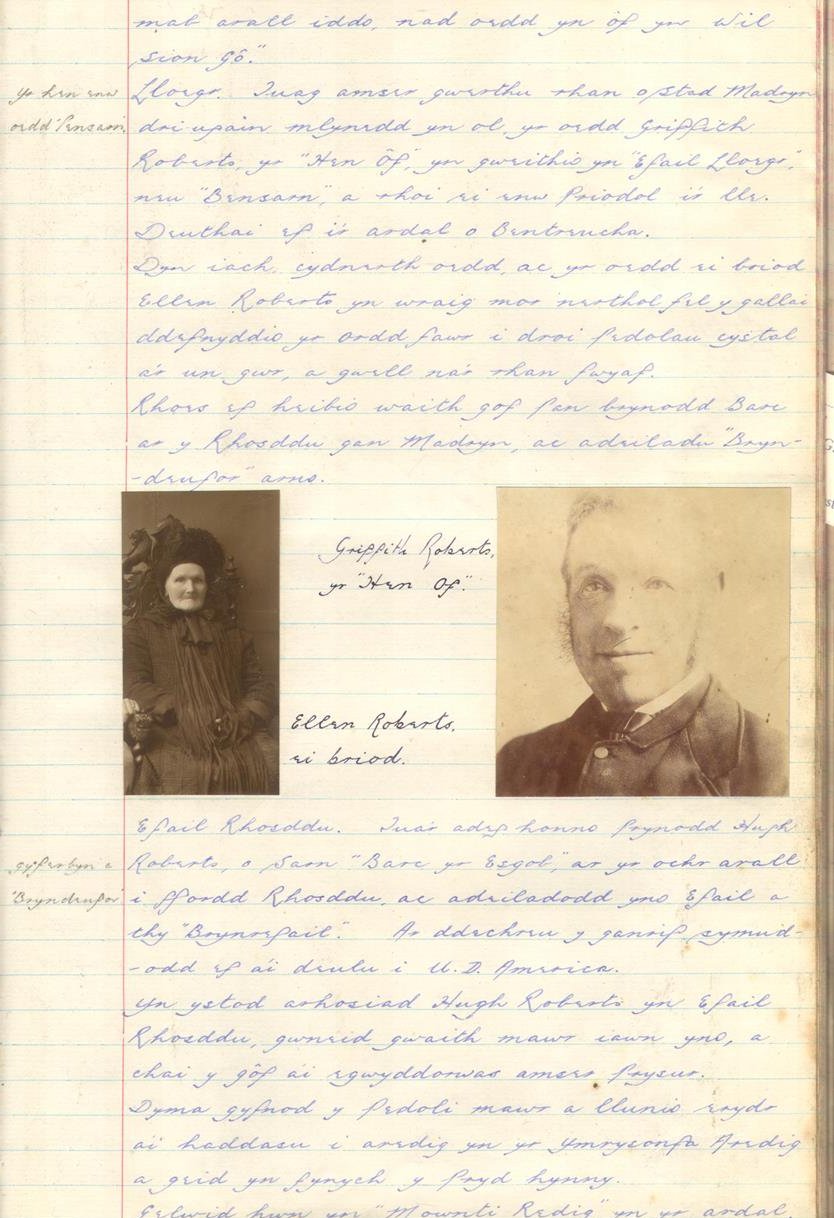 mab arall iddo, nad oedd yn ôf yw Wil
Sion Gô."
Yr hen enw
oedd 'Pensarn.
Lloegr. Tuag amser gwerthu rhan o Stad Madryn
dri upain mlynedd yn ol, yr oedd Griffith
Roberts, yr "Hen Ôf", yn gweithio yn "Efail Lloegr",
neu "Bensarn", a rhoi ei enw Priodol i'r lle.
Deuthai ef i'r ardal o Bentreucha.
Dyn iach, cydnerth oedd, ac yr oedd ei briod
Ellen Roberts yn wraig mor nerthol fel y gallai
ddefnyddio yr ordd fawr i droi pedolau cystal
a'r un gwr, a gwell na'r rhan fwyaf.
Rhoes ef heibio waith gof pan brynodd Barc
ar y Rhosddu gan Madryn, ac adeiladu "Bryn-
-deufor" arno.
Griffith Roberts,
yr "Hen Of".
Ellen Roberts,
ei briod.
Efail Rhosddu. Tua'r adeg honno prynodd Hugh
gyferbyn a
'Bryndeufor'
Roberts, o Sarn "Barc yr Esgob", ar yr ochr arall
i ffordd Rhosddu, ac adeiladodd yno Efail a
thy "Brynrefail". Ar ddechreu y ganrif symud-
-odd ef a'i deulu i U.D. America.
Yn ystod arhosiad Hugh Roberts yn Efail
Rhosddu, gwneid gwaith mawr iawn yno, a
chai y gôf a'i egwyddorwas amser prysur.
Dyma gyfnod y pedoli mawr a llunio erydr
a'i haddasu i aredig yn yr Ymrysonfa Aredig
a geid yn fynych y pryd hynny.
Gelwid hwn yn "Mownti Redig" yn yr ardal.